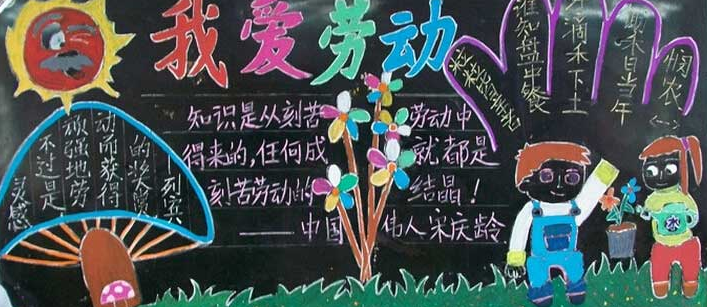 我爱劳动
知识是从刻苦劳动中
得来的,任何成就都是
刻苦劳动的结晶!
——中国伟人宋庆龄
灵感
不过是
顽强地劳
动而获得
的奖赏
——列宾
悯农
锄禾日当午
汗滴禾下土
谁知盘中餐
粒粒皆辛苦